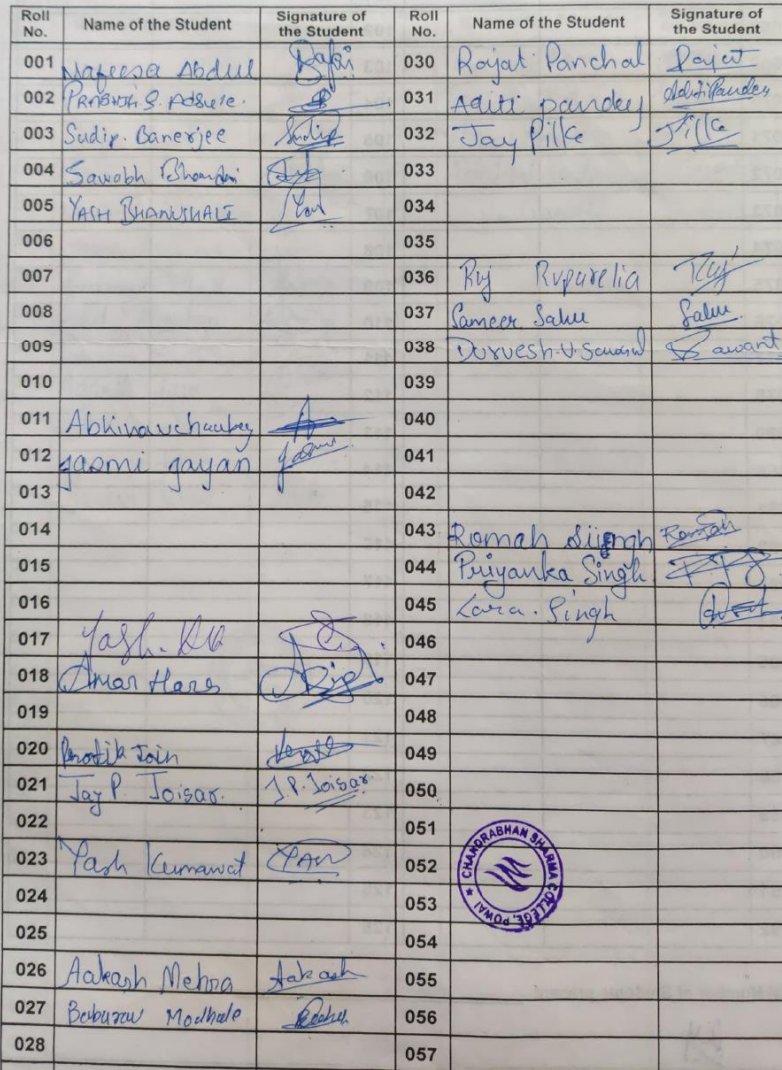 Roll No. Name of the Student Signature of the Student Roll No. Name of the Student Signature of the Student
001 Nafeesa Abdul 030 Rajat Panchal Rajat
002 031 Aditi pandey Aditi Pandey
003 Sudip. Banerjee Sudip 032 Jay Pilke Pilke
004 033
005 YASH BHANUSHALI Yash 034
006 035
007 036 Raj Ruparelia Raj
008 037 Sameer Sahu Sahu
009 038 Durvesh.V.Sawant Sawant
010 039
011 Abhinav chaubey 040
012 jasmi jayan 041
013 042
014 043 Romah
015 044 Priyanka Singh
016 045 Zara. Singh
017 Yash. 046
018 Amar 047
019 048
020 Pratik Jain 049
021 Jay P. Joisar. J.P. Joisar. 050
022 051
023 Yash Kumawat 052
024 053
025 054
026 Aakash Mehra Aakash 055
027 Baburav 056
028 057
CHANDRABHAN SHARMA COLLEGE, POWAI ★